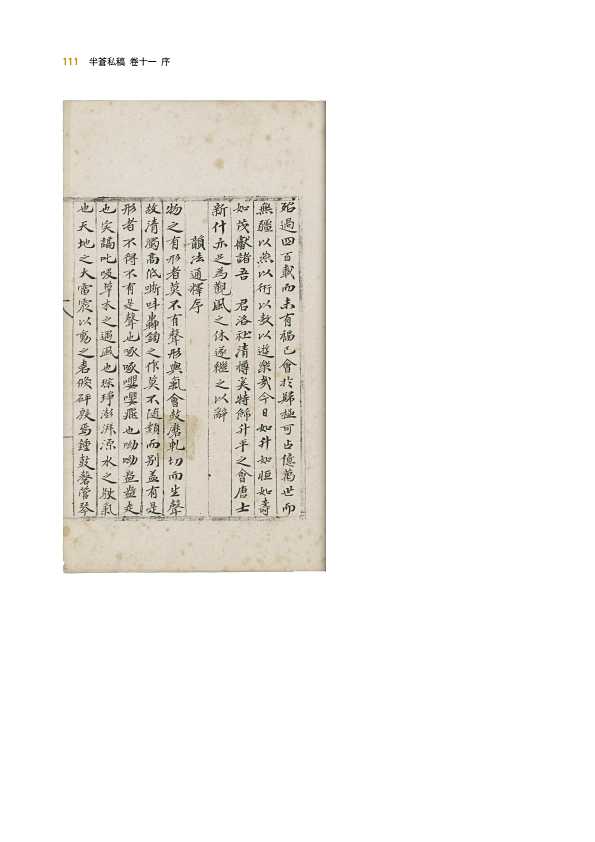 111 半蒼私稿 卷十一 序
過四百載而未有福已會於歸極可占億萬世而
無疆以燕以衎以敖以遊樂哉今日如升如恒如壽
如茂獻諸吾 君洛社清樽奚特飾升平之會唐士
新什亦足為觀風之休遂繼之以辭
韻法通釋序
物之有形者莫不有聲形與氣會鼓磨軋切而生聲
故清濁高低嘶吽轟鍧之作莫不随類而别盖有是
形者不得不有是聲也啄啄嚶嚶飛也呦呦走
也突謞叱吸草木之遇風也琤澎湃凉水之氣
也天地之大雷霆以為之砰殷焉鍾鼓磬管琴